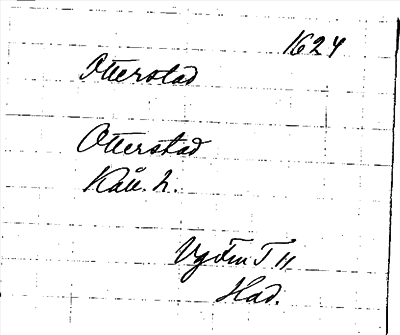 1624
Otterstad
Otterstad
Kåll. h.
Vg Fm T 11
Had.